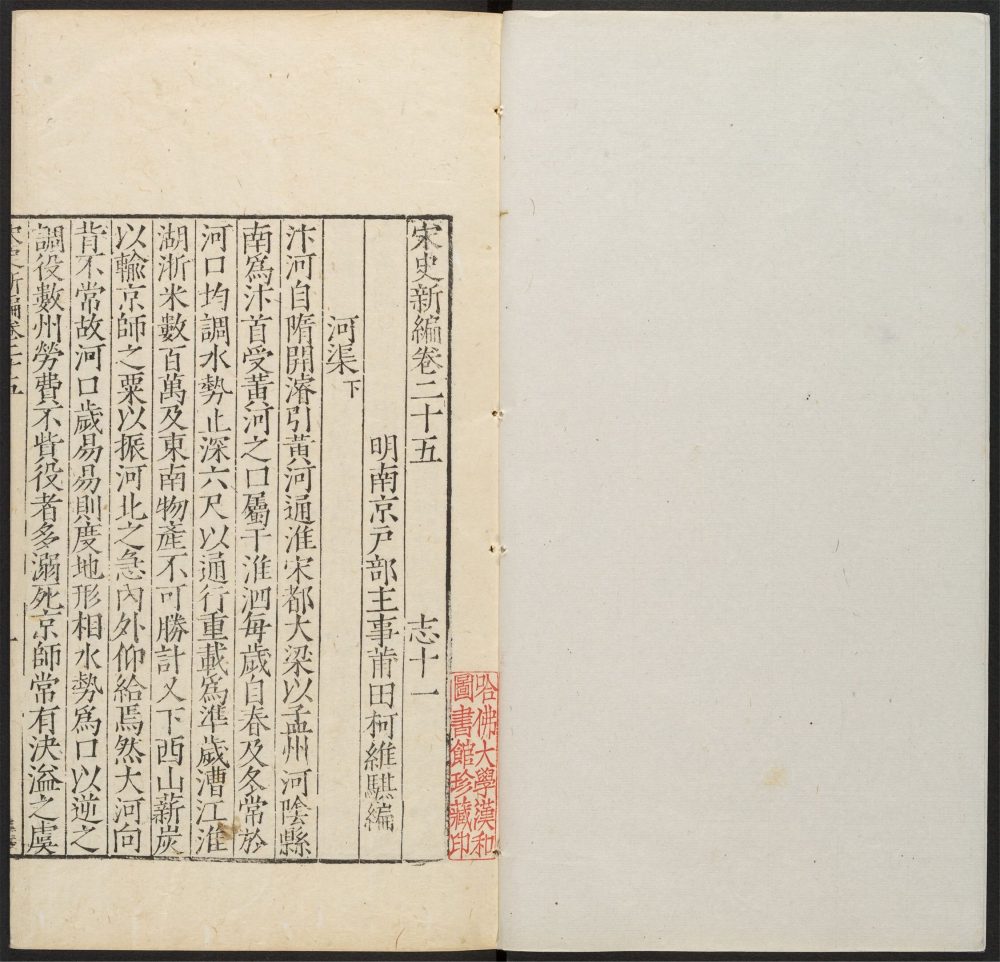 宋史新編卷二十五　志十一
明南京戸部主事莆田柯維騏編
河渠下
汴河自隋開濬引黃河通淮宋都大梁以孟州河陰縣
南爲汴首受黃河之口屬于淮泗每歲自春及冬常於
河口均調水勢止深六尺以通行重載爲準歲漕江淮
湖浙米數百萬及東南物產不可勝計又下西山薪炭
以輸京師之粟以振河北之急內外仰給焉然大河向
背不常故河口歲易易則度地形相水勢爲口以逆之
調役數州勞費不貲役者多溺死京師常有決溢之虞
宋史新編卷二十五　一
哈佛大學漢和
圖書館珍藏印